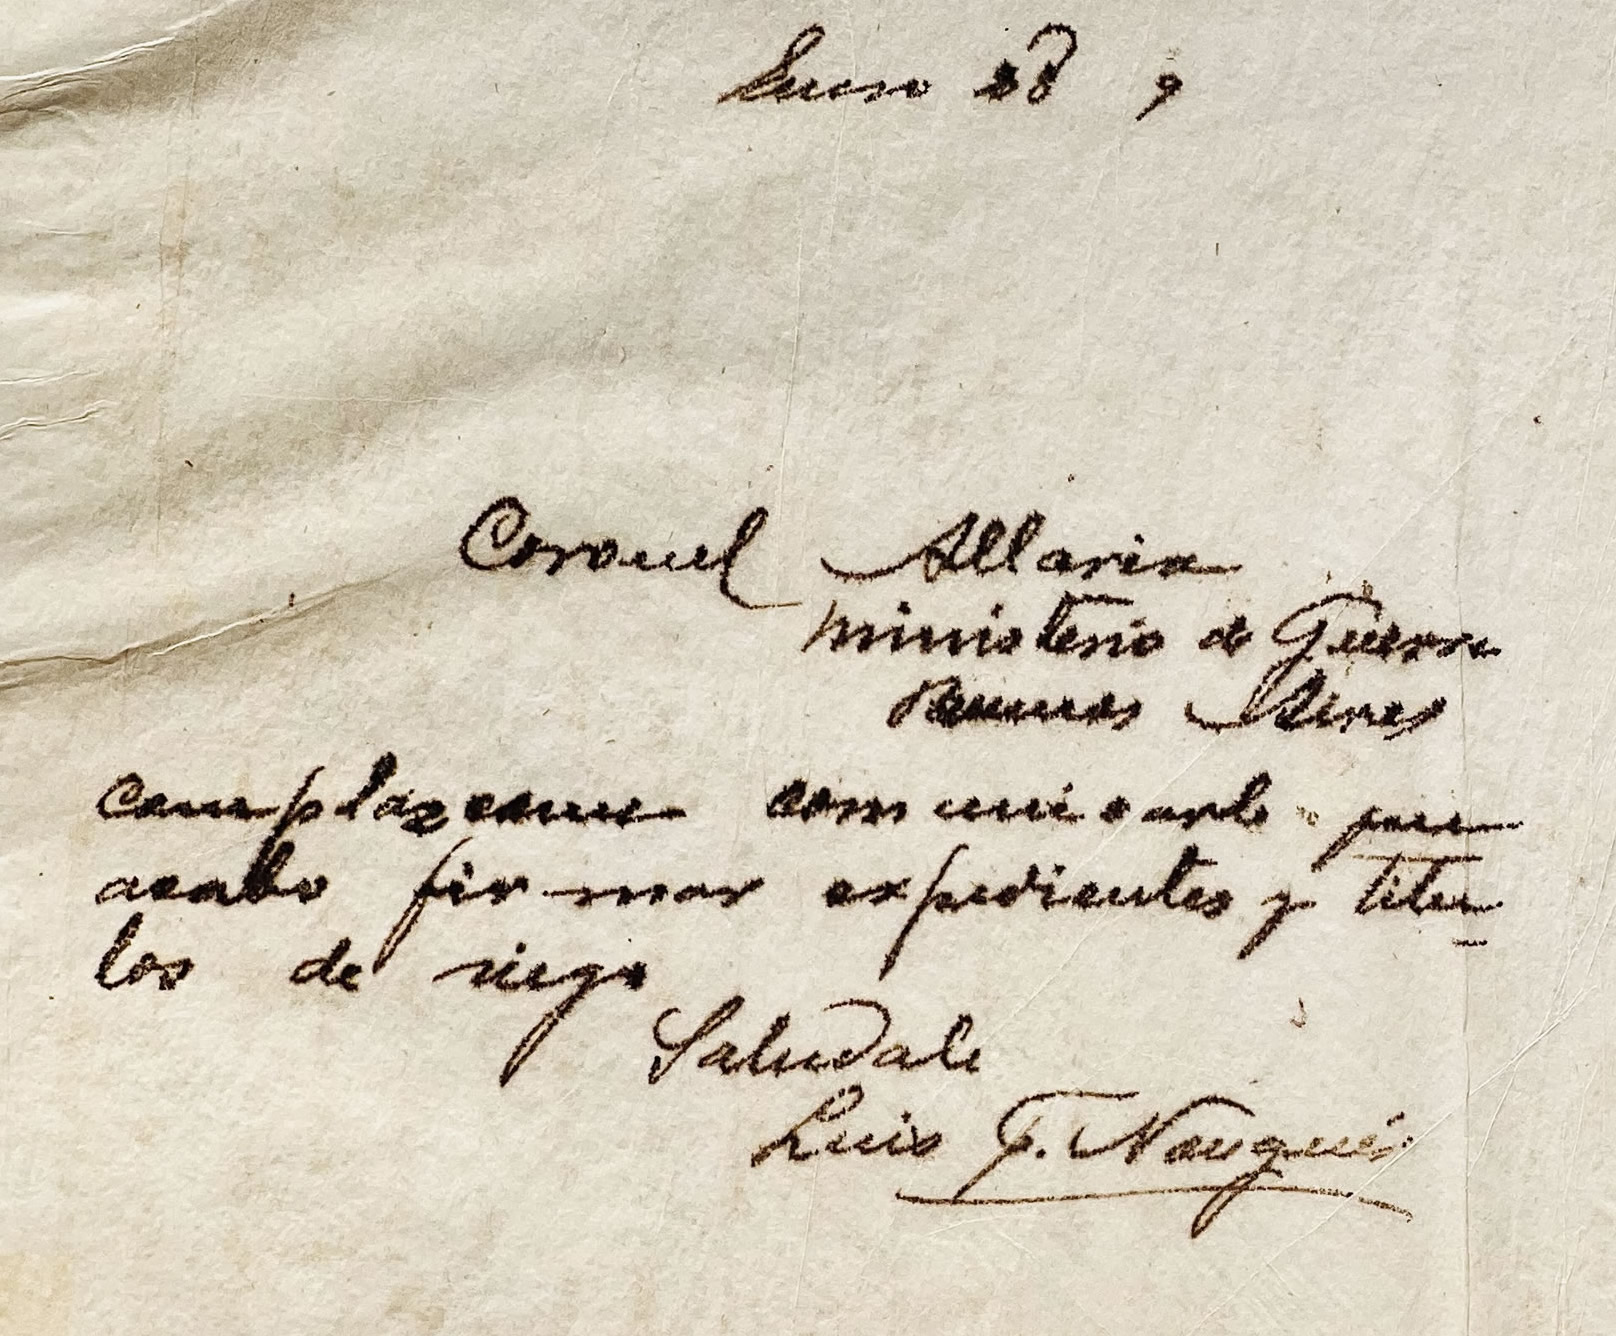 Enero 28 9
Coronel Allaria
Ministerio de Guerra
Buenos Aires
Complazcome comunicarle que
acabo firmar expedientes y titu-
los de riego
Saludale
Luis F. Nougués